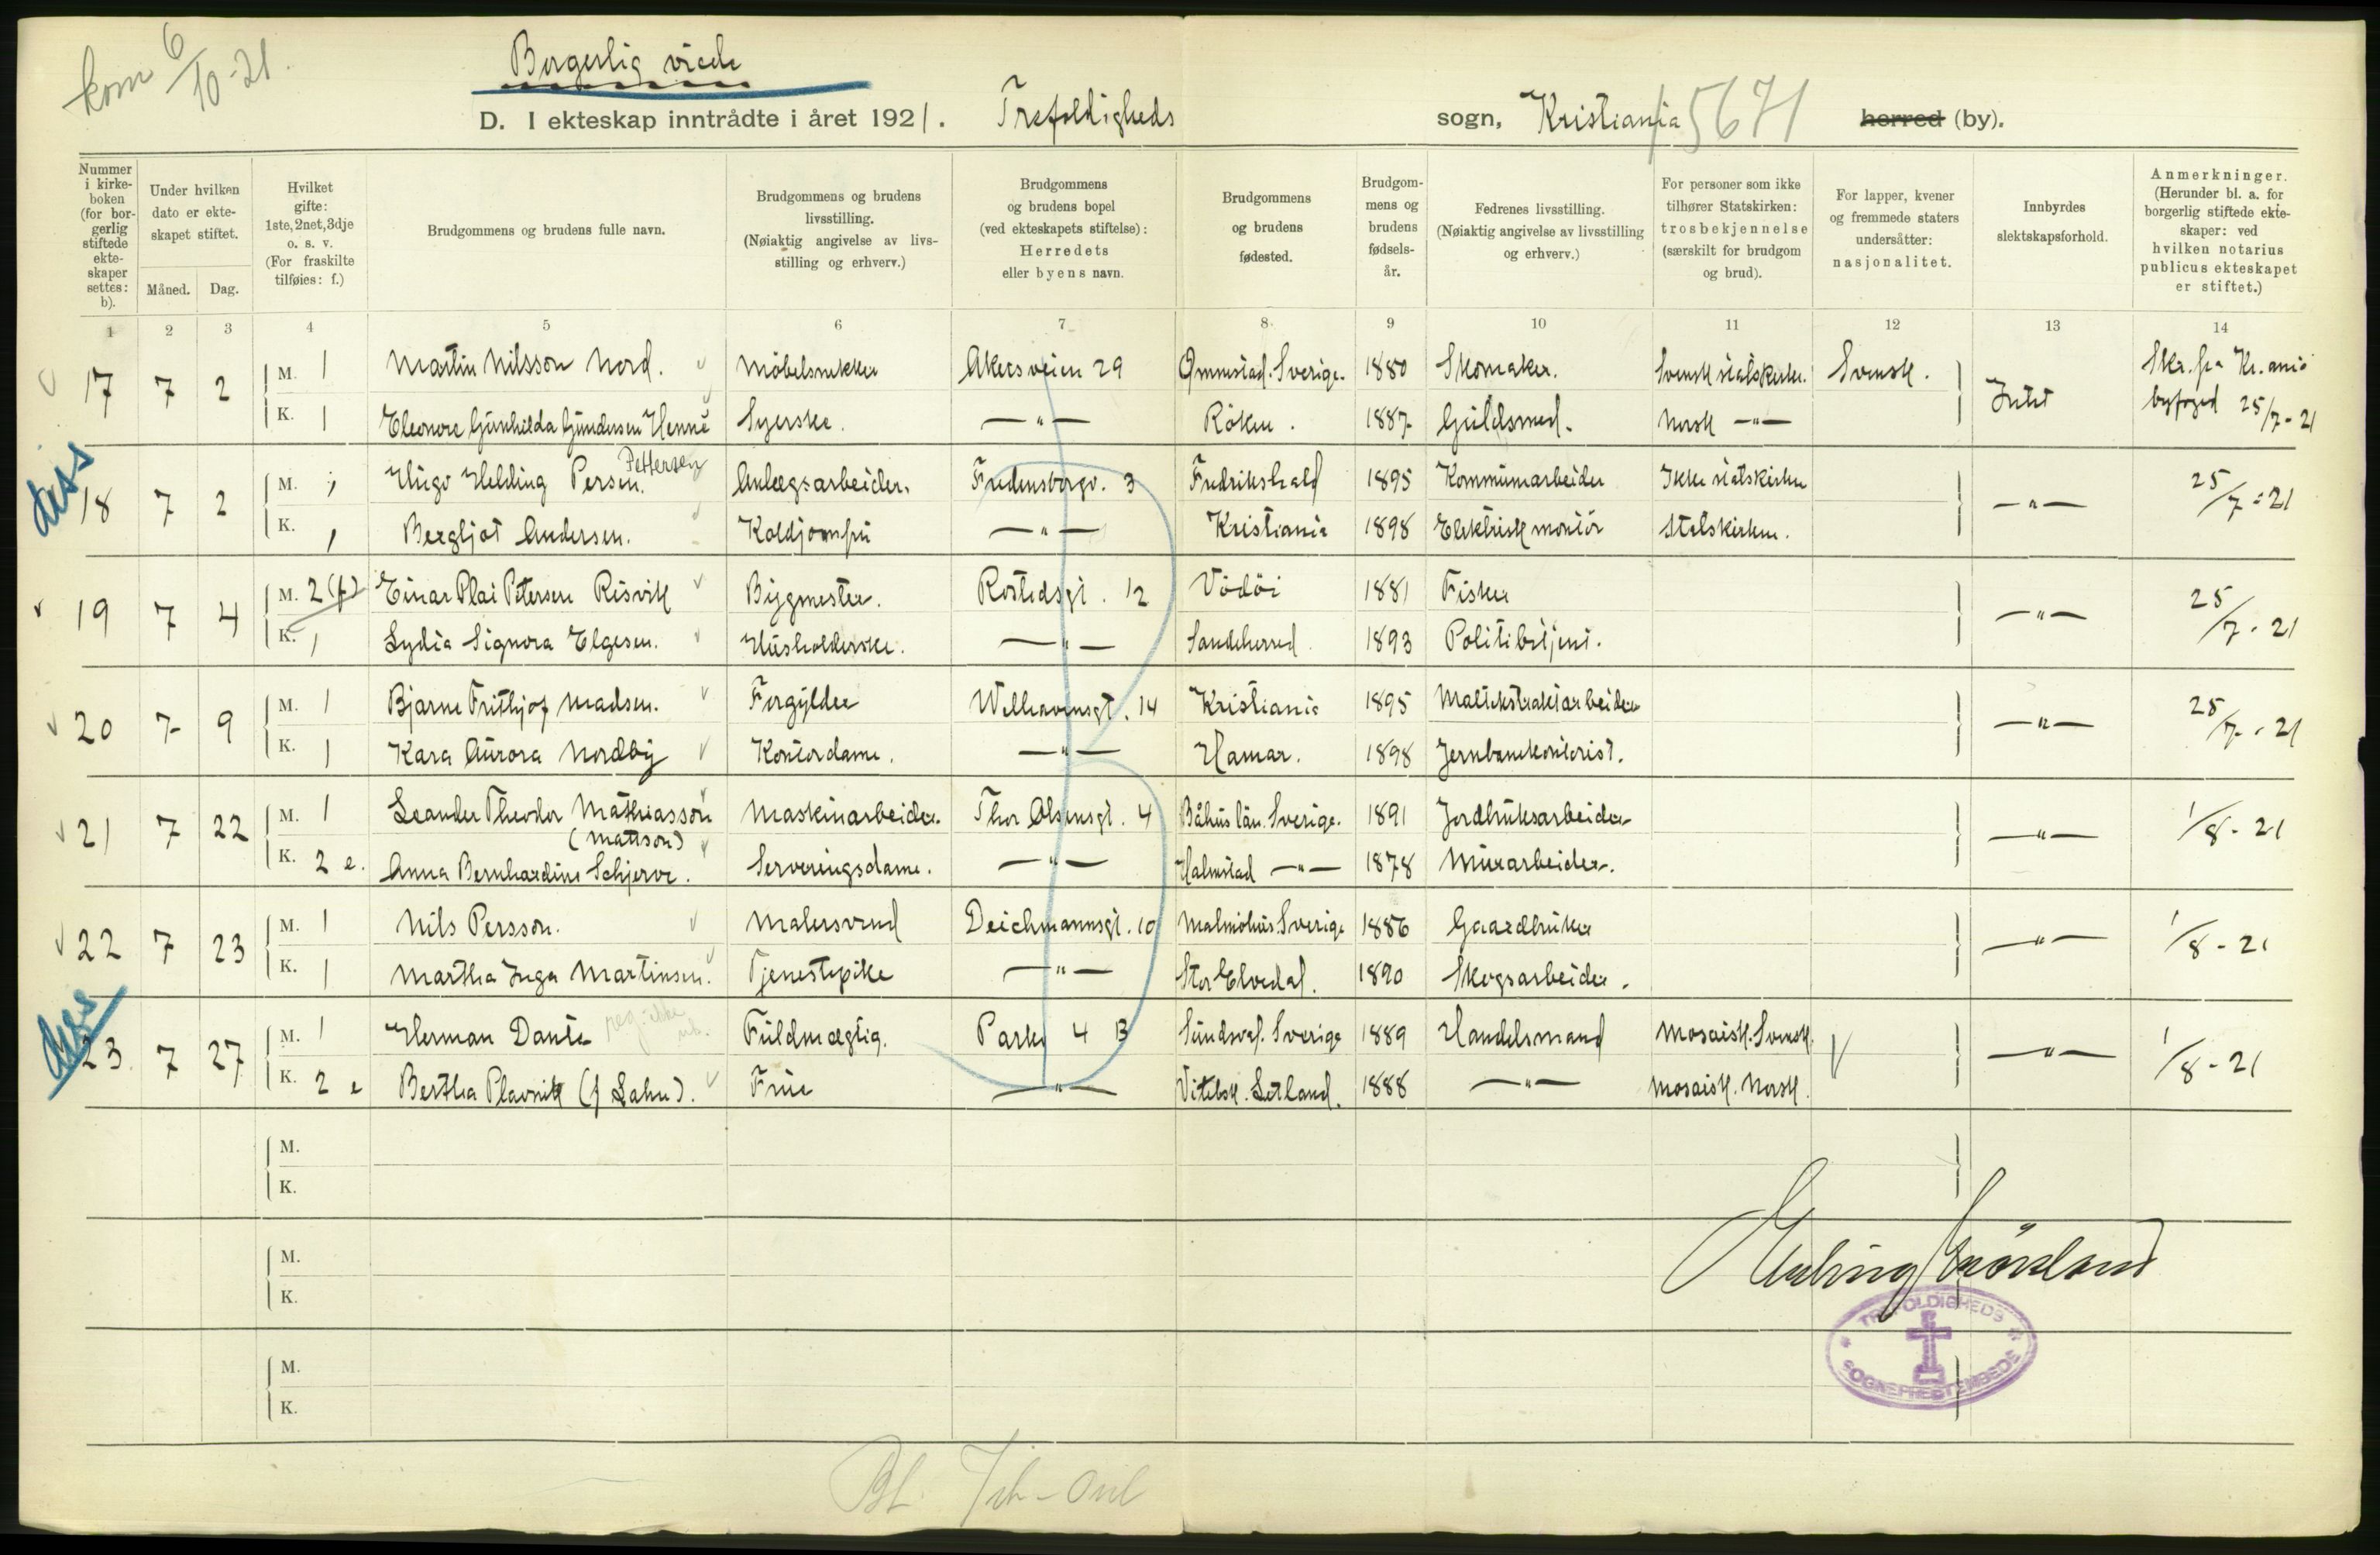 kom 6/10-21.
Borgerlig viede
D. I ekteskap inntrådte i året 1921. Trefoldigheds sogn, Kristiania 5671 herred (by).
Nummer i kirkeboken (for borgerlig stiftede ekteskaper settes: b).
Under hvilken dato er ekteskapet stiftet.
Måned. Dag.
Hvilket gifte: 1ste, 2net, 3dje o. s. v. (For fraskilte tilføies: f.)
Brudgommens og brudens fulle navn.
Brudgommens og brudens livsstilling. (Nøiaktig angivelse av livsstilling og erhverv.)
Brudgommens og brudens bopel (ved ekteskapets stiftelse): Herredets eller byens navn.
Brudgommens og brudens fødested.
Brudgommens og brudens fødselsår.
Fedrenes livsstilling. (Nøiaktig angivelse av livsstilling og erhverv.)
For personer som ikke tilhører Statskirken: trosbekjennelse (særskilt for brudgom og brud).
For lapper, kvener og fremmede staters undersåtter: nasjonalitet.
Innbyrdes slektskapsforhold.
Anmerkninger. (Herunder bl. a. for borgerlig stiftede ekteskaper: ved hvilken notarius publicus ekteskapet er stiftet.)
1 2 3 4 5 6 7 8 9 10 11 12 13 14
17 7 2 M. 1 Martin Nilsson Nord. Møbelsnekker Akersveien 29 Sverige. 1880 Skomaker. Svensk statskirke. Svensk. Intet Skr. fra Kr.ania byfoged 25/7-21
K. 1 Eleonore Gunhilda Gundersen Henne Syerske. —"— Røken. 1887 Guldsmed. Norsk —"—
18 7 2 M. 1 Hugo Helding Persen. Pettersen Anlægsarbeider. Fredensborgv. 3 Fredrikshald 1895 Kommunearbeider Ikke statskirken —"— 25/7-21
K. 1 Bergljot Andersen. Koldjomfru —"— Kristiania 1898 Elektrisk montør Statskirken.
19 7 4 M. 2 (f) Einar Plai Petersen Risvik Bygmester. Rostedsgt. 12 Vödöi 1881 Fisker —"— 25/7-21
K. 1 Lydia Signora Elgesen. Husholderske. —"— Sandeherred 1893 Politibetjent.
20 7 9 M. 1 Bjarne Frithjof Madsen. Forgylder Welhavensgt. 14 Kristiania 1895 Maltekstraktarbeider —"— 25/7-21
K. 1 Kara Aurora Nordby Kontordame. —"— Hamar. 1898 Jernbanekontorist.
21 7 22 M. 1 Leander Theodor Mathiasson (Mattson) Maskinarbeider. Thor Olsensgt. 4 Båhus län. Sverige. 1891 Jordbruksarbeider —"— 1/8-21
K. 2 e. Anna Bernhardine Schjerve. Serveringsdame. —"— Halmstad —"— 1878 Murarbeider.
22 7 23 M. 1 Nils Persson. Malersvend Deichmannsgt. 10 Malmöhus. Sverige 1886 Gaardbruker —"— 1/8-21
K. 1 Martha Inga Martinsen. Tjenestepike —"— Stor Elvedal. 1890 Skogsarbeider.
23. 7 27 M. 1 Herman Dante Fuldmægtig. Parkv 4 B Sundsval. Sverige 1889 Handelsmand Mosaisk. Svensk. —"— 1/8-21
K. 2 e Bertha Plavnik (f Lahn). Frue —"— Vitebsk. Letland. 1888 —"— Mosaisk. Norsk.
M.
K.
M.
K.
M.
K.
TREFOLDIGHEDS SOGNEPRESTEMBEDE